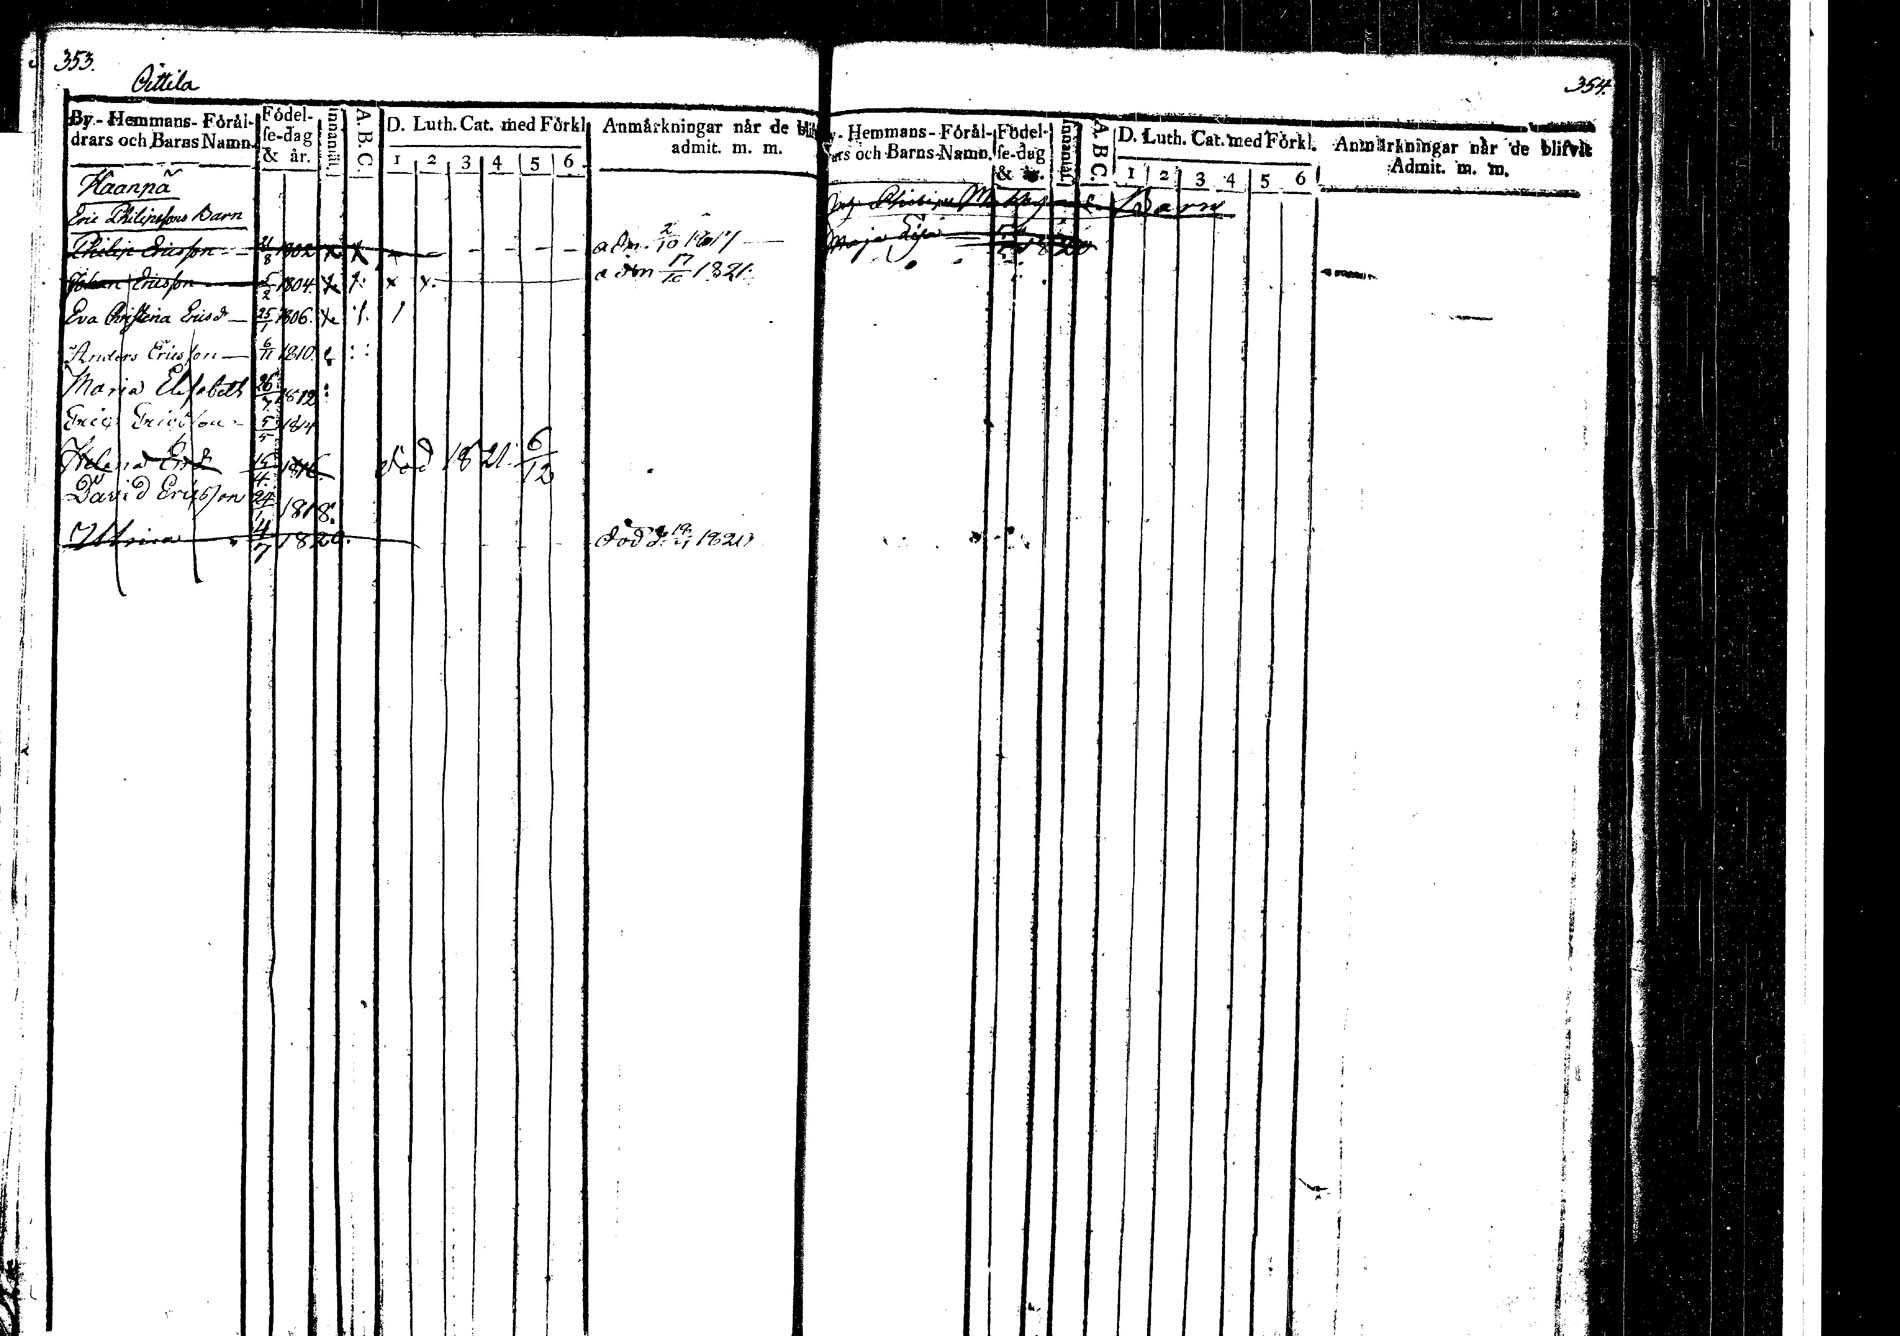 353.
Oittila
By- Hemmans- Förål-
drars och Barns Namn.
Födel-
se-dag
& år.
Innanläs.
A. B. C.
D. Luth. Cat. med Förkl
1 2 3 4 5 6
Anmårkningar når de blif
admit. m. m.
Haanpä
Eric Philipssons Barn
Philip Ericsson 21/8 1802 x x adm. 2/10 1817
Johan Ericsson 5/2 1804 x x x x adm 17/10 1821
Eva Christina Ericsd 25/1 1806
Anders Ericsson 6/11 1810
Maria Elisabeth 26/7 1812
Eric Ericsson 5/5 1814
Helena Ericsd 15/4 1816 död 1821 6/12
David Ericsson 24/1 1818
Ulrica 4/7 1820 död 1821
354.
y- Hemmans- Förål-
ars och Barns Namn.
Födel-
se-dag
& år.
Innanläs.
A. B. C.
D. Luth. Cat. med Förkl.
1 2 3 4 5 6
Anmårkningar når de blifvit
Admit. m. m.
Barn
Maja Lisa 1820